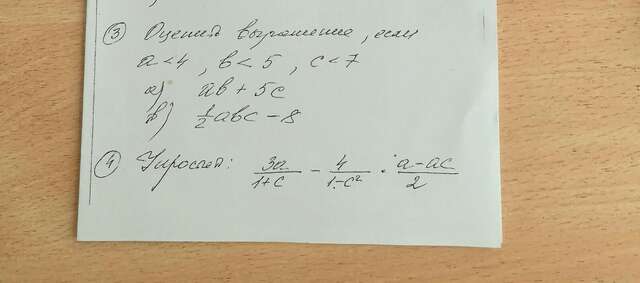 ③ Оценить выражение, если
a < 4 , b < 5 , c < 7
а) ab + 5c
б) 1/2 abc - 8
④ Упростить: 3a/(1+c) - 4/(1-c²) · (a-ac)/2